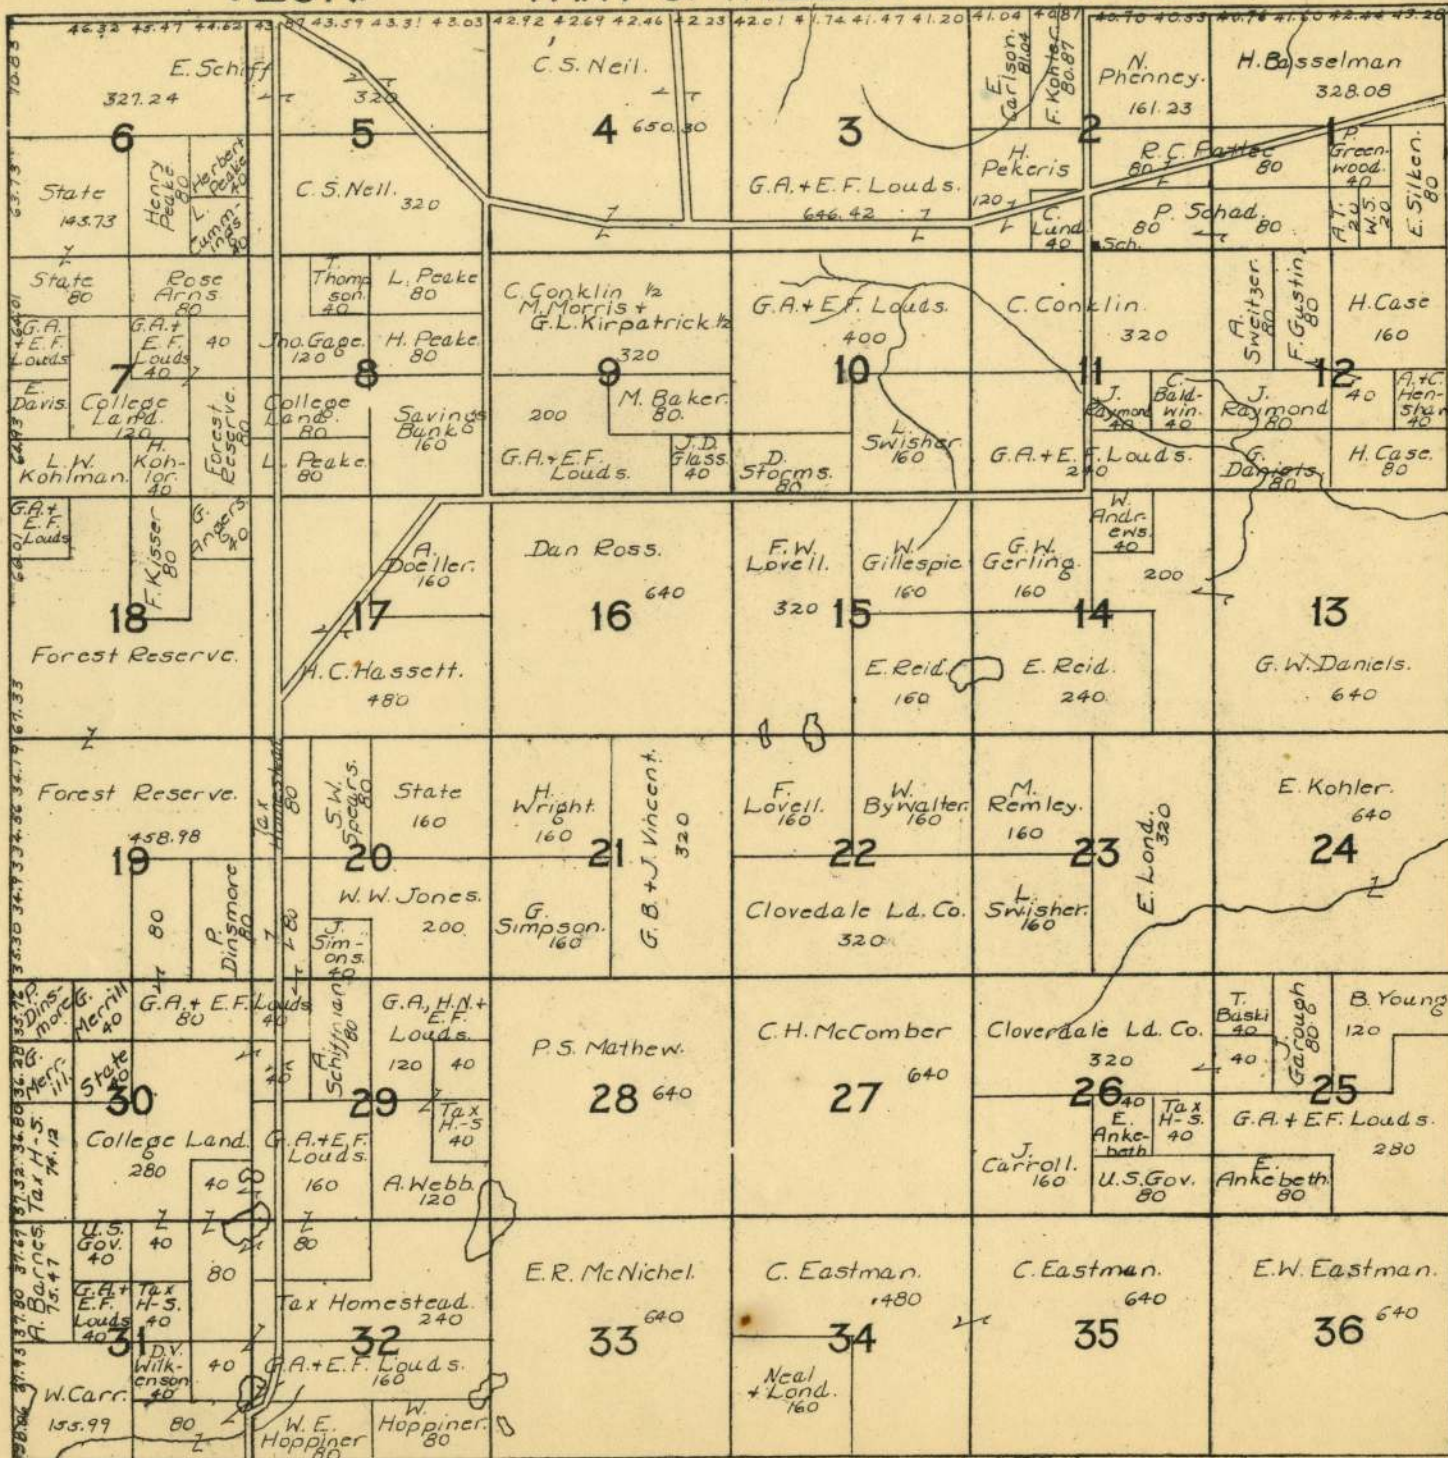 46.32 45.47 44.62 43.87 43.59 43.31 43.03 42.92 42.69 42.46 42.23 42.01 41.74 41.47 41.20 41.04 40.87 40.70 40.53 40.76 41.60 42.44 43.28
70.83
63.73
E. Schiff
327.24
6
State
143.73
Henry Peake
80
Herbert Peake
40
L. Cummings
40
320
5
C.S. Neil.
320
C.S. Neil.
4
650.30
3
G.A. + E.F. Louds.
646.42
E. Carlson.
81.04
F. Kohler
80.87
2
N. Phenney.
161.23
H. Pekeris
120
C. Lund
40
Sch.
H. Basselman
328.08
1
R.C. Pattee
80
80
P. Schad.
80
80
P. Greenwood.
40
A.T.
20
W.S.
20
E. Silken.
80
State
80
Rose Arns
80
G.A. + E.F. Louds
G.A. + E.F. Louds
40
40
7
E. Davis
College Land.
120
Forest Reserve.
80
L.W. Kohlman.
H. Kohlor.
40
T. Thompson.
40
L. Peake
80
Jno. Gage.
120
H. Peake.
80
8
College Land.
80
Savings Bank
160
L. Peake.
80
C. Conklin ½
M. Morris +
G.L. Kirpatrick ½
320
9
200
M. Baker.
80.
G.A. + E.F. Louds.
J.D. Glass.
40
G.A. + E.F. Louds.
400
10
D. Storms.
80
L. Swisher
160
C. Conklin.
320
11
J. Raymond
40
C. Baldwin.
40
G.A. + E.F. Louds.
240
A. Sweitzer.
80
F. Gustin,
80
H. Case
160
12
J. Raymond
80
40
A.+C. Henshaw
40
G. Daniels
80
H. Case.
80
G.A. + E.F. Louds
F. Kisser
80
G. Angers
40
18
Forest Reserve.
A. Doeller.
160
17
H.C. Hassett.
480
Dan Ross.
640
16
F.W. Lovell.
320
15
W. Gillespie
160
E. Reid.
160
G.W. Gerling.
160
W. Andrews.
40
200
14
E. Reid.
240
13
G.W. Daniels.
640
Forest Reserve.
458.98
19
80
P. Dinsmore
80
Tax Homestead
80
80
S.W. Spears.
80
State
160
20
W.W. Jones.
200
J. Simons.
40
H. Wright.
160
21
G. Simpson.
160
G.B. + J. Vincent.
320
F. Lovell.
160
W. Bywalter.
160
22
Clovedale Ld. Co.
320
M. Remley.
160
23
L. Swisher.
160
E. Lond.
320
E. Kohler.
640
24
P. Dinsmore
G. Merrill
40
G.A. + E.F. Louds
80
40
G. Merrill.
State
40
30
A. Barnes. Tax H-S.
75.47
74.12
College Land.
280
40
40
A. Schiffman
80
G.A., H.N. + E.F. Louds.
120
40
29
Tax H.-S
40
G.A. + E.F. Louds.
160
A. Webb.
120
P.S. Mathew.
28
640
C.H. McComber
27
640
Cloverdale Ld. Co.
320
26
J. Carroll.
160
40
E. Ankebeth
Tax H-S.
40
U.S. Gov.
80
T. Baski
40
40
J. Garough
80
B. Young
120
25
G.A. + E.F. Louds.
280
E. Ankebeth.
80
U.S. Gov.
40
40
80
G.A. + E.F. Louds
40
Tax H-S.
40
31
D.V. Wilkenson
40
40
W. Carr.
155.99
80
80
Tax Homestead.
240
32
G.A. + E.F. Louds.
160
W.E. Hoppiner
80
W. Hoppiner.
80
E.R. McNichel.
33
640
C. Eastman.
480
34
Neal + Lond.
160
C. Eastman.
640
35
E.W. Eastman.
36
640